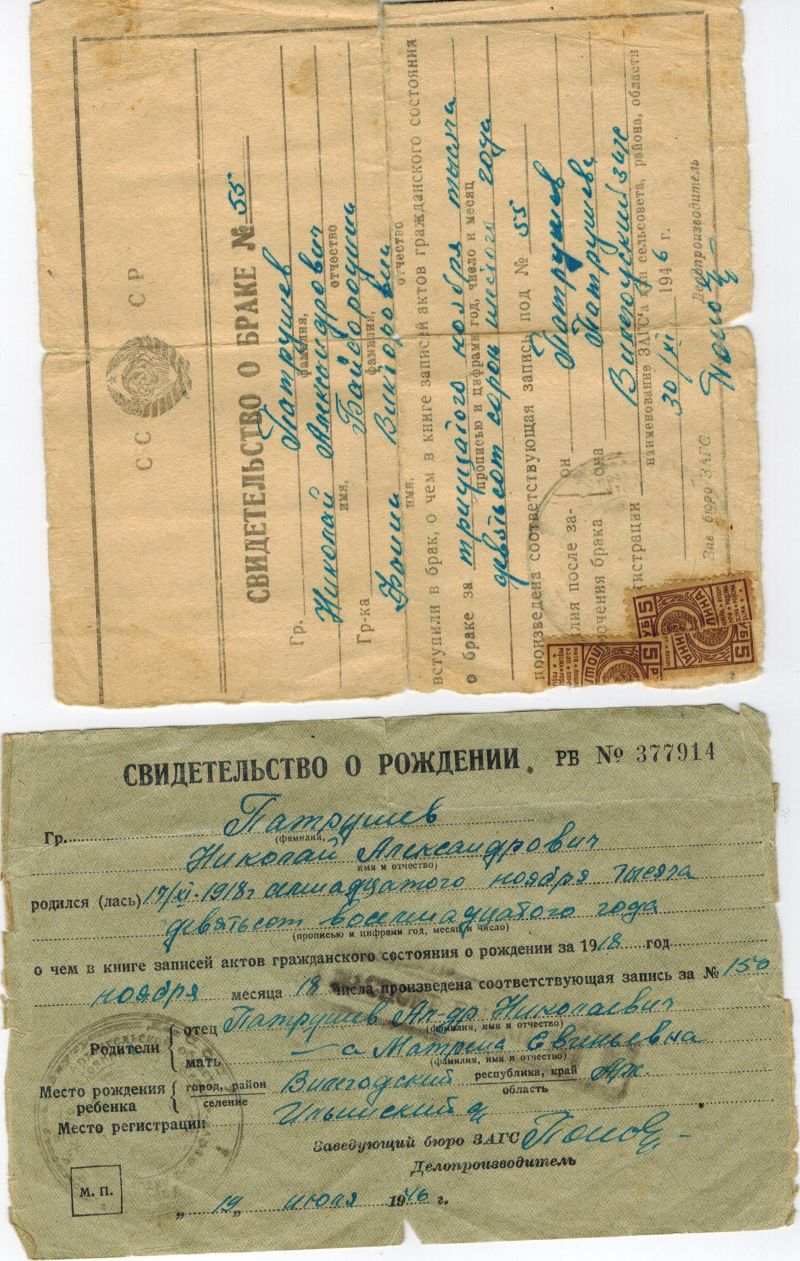 СС СР
СВИДЕТЕЛЬСТВО О БРАКЕ № 55
Гр. Патрушев
фамилия,
Николай Александрович
имя, отчество
Гр-ка Байбородина
фамилия,
Фаина Викторовна
имя, отчество
вступили в брак, о чем в книге записей актов гражданского состояния
о браке за тридцатого ноября тысяча
прописью и цифрами год, число и месяц
девятьсот сорок шестого года
произведена соответствующая запись под № 55
илия после за- он Патрушев
ючения брака она Патрушева
истрации Вилегодский загс
наименование ЗАГС'а или сельсовета, района, области
30/XI 1946 г.
Зав бюро ЗАГС Делопроизводитель
5 РУБ 5
СВИДЕТЕЛЬСТВО О РОЖДЕНИИ. РБ № 377914
Гр. Патрушев
(фамилия,
Николай Александрович
имя и отчество)
родился (лась) 17/XI-1918г семнадцатого ноября тысяча
девятьсот восемнадцатого года
(прописью и цифрами год, месяц и число)
о чем в книге записей актов гражданского состояния о рождении за 1918 год
ноября месяца 18 числа произведена соответствующая запись за № 150
Родители отец Патрушев Ал-др Николаевич
(фамилия, имя и отчество)
мать —а Матрена
(фамилия, имя и отчество)
Место рождения ребенка город, район селение Вилегодский республика, край область Арх.
Место регистрации Ильинский
Заведующий бюро ЗАГС
Делопроизводитель
М. П.
„19„ июля 1946 г.